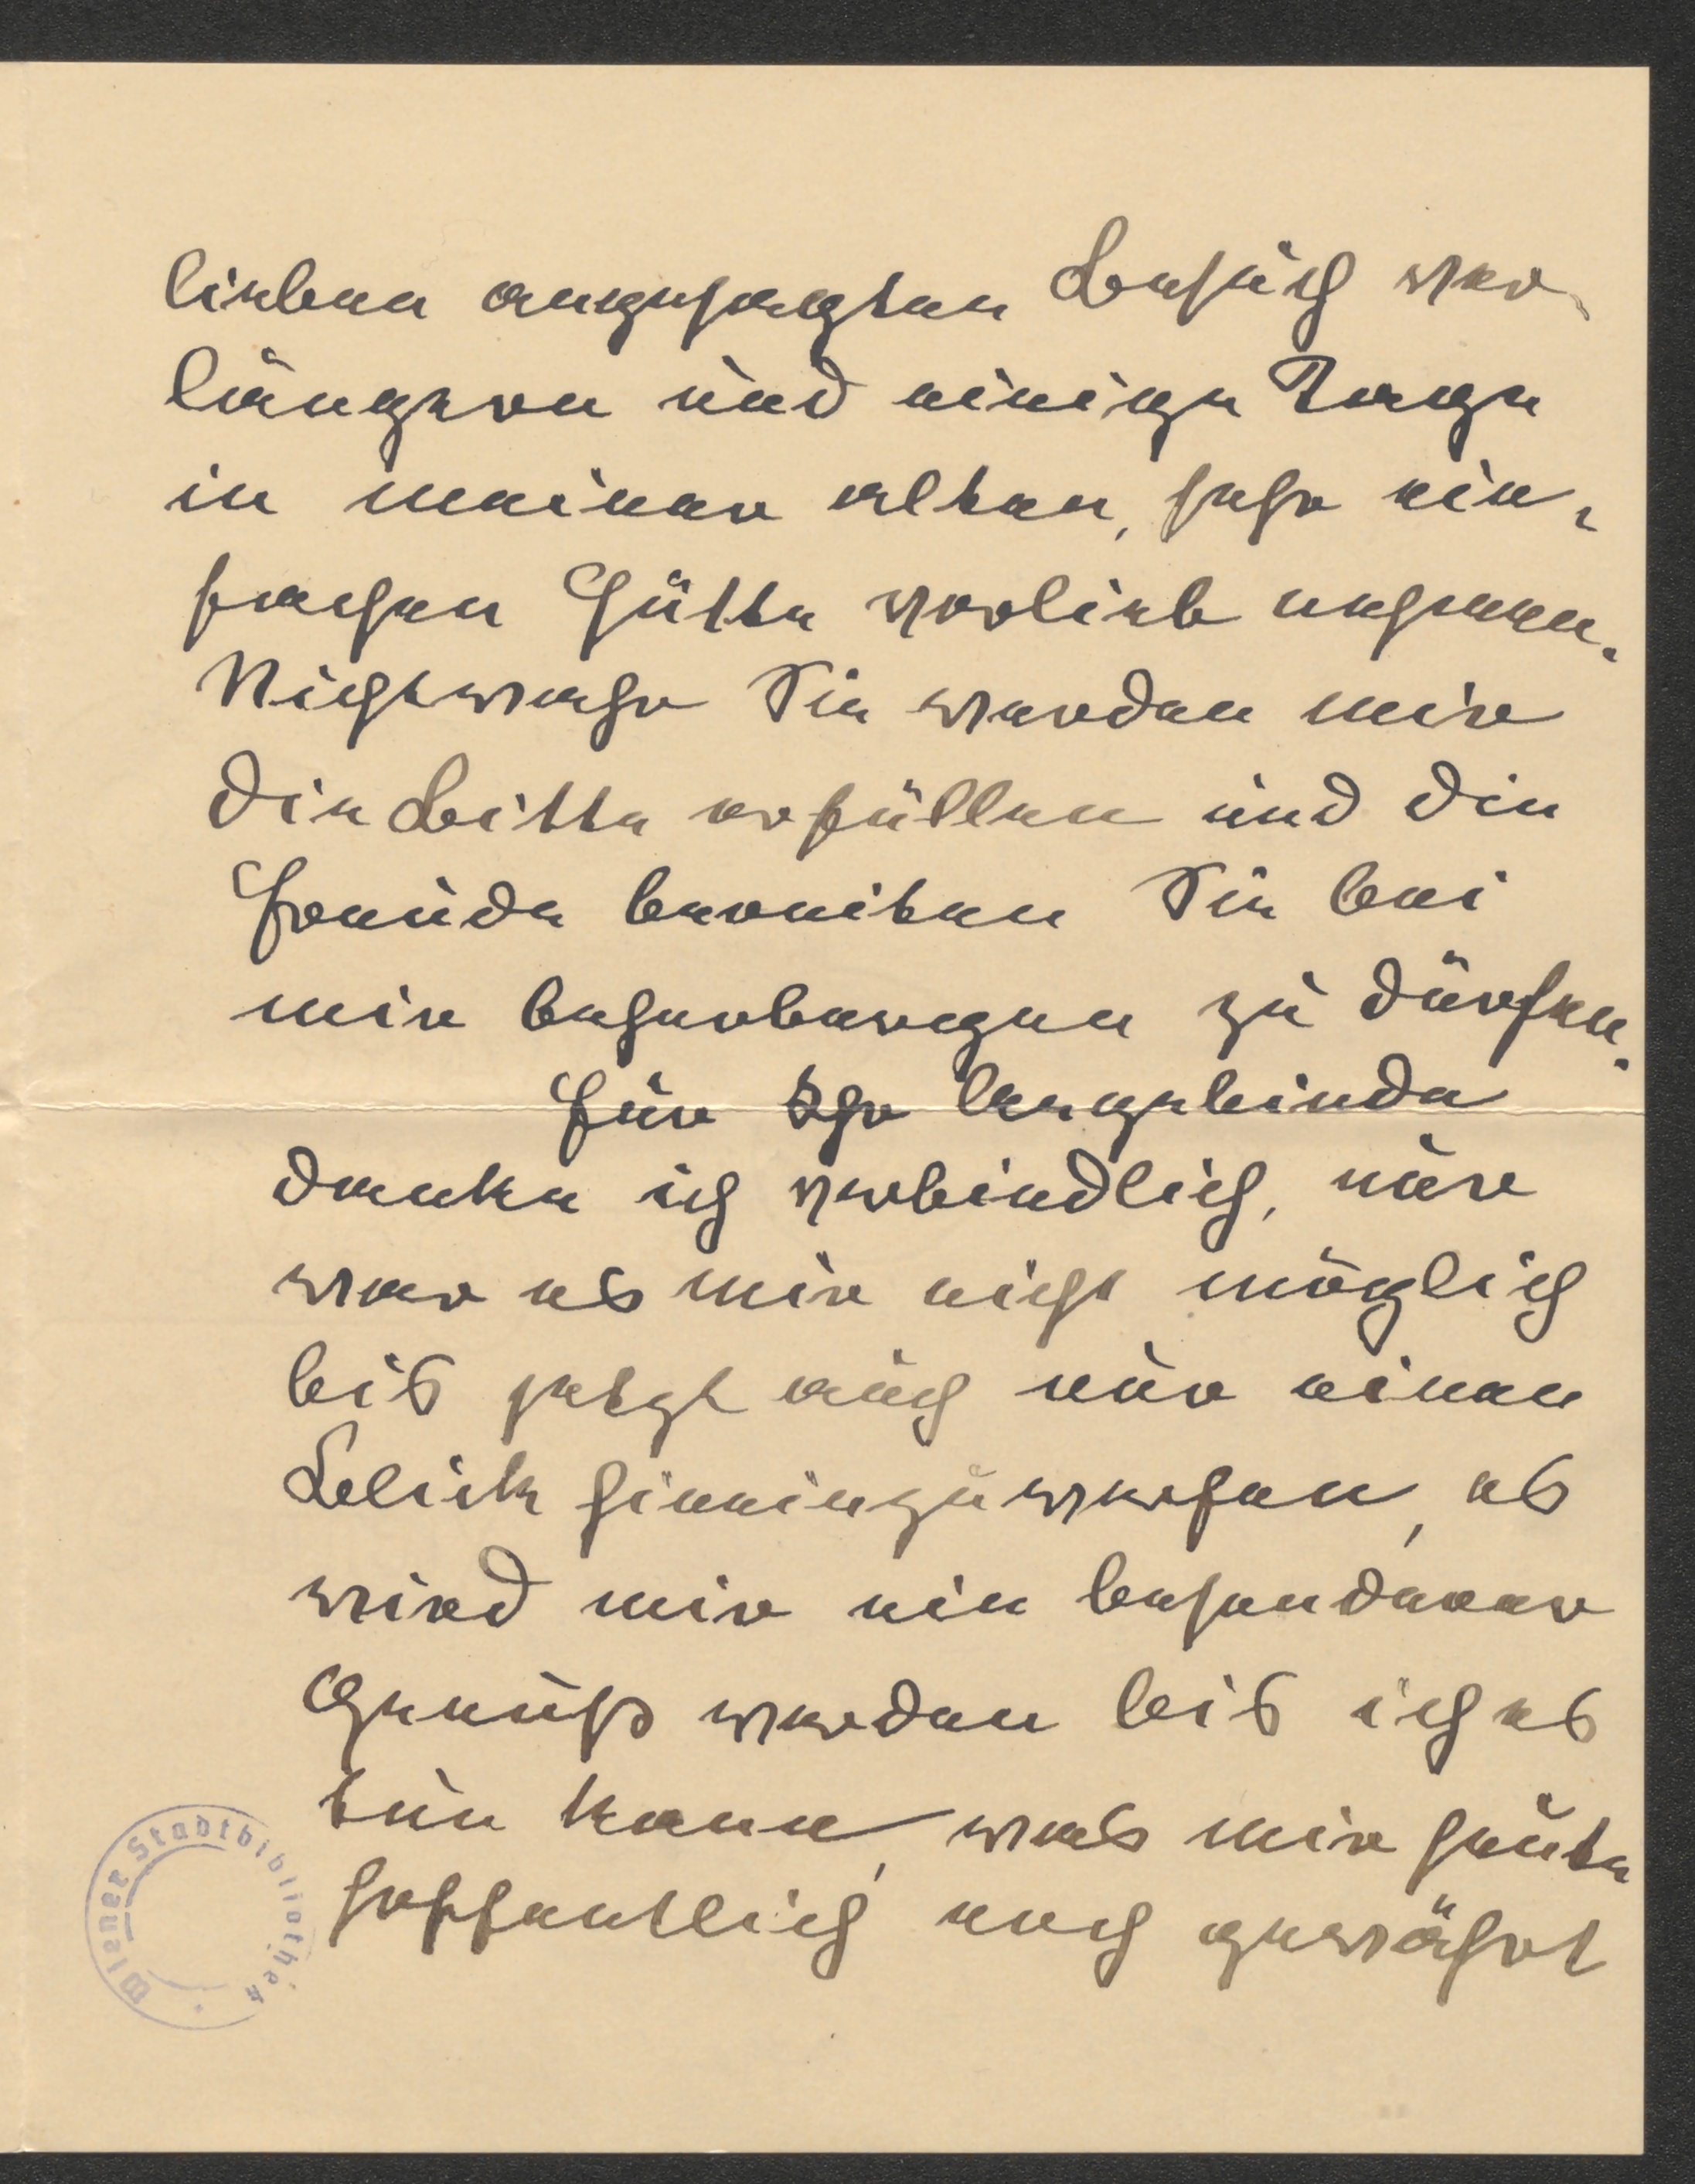 lieben angesagten Besuch ver-
längern und einige Tage
in meiner alten, sehr ein-
fachen Hütte vorlieb nehmen.
Nichtwahr Sie werden mir
die Bitte erfüllen und die
Freude bereiten Sie bei
mir beherbergen zu dürfen.
Für Ihr Angebinde
danke ich verbindlich, nur
war es mir nicht möglich
bis jetzt auch nur einen
Blick hineinzuwerfen, es
wird mir ein besonderer
Genuß werden bis ich es
tun kann, was mir heute
hoffentlich noch gewährt
Wiener Stadtbibliothek